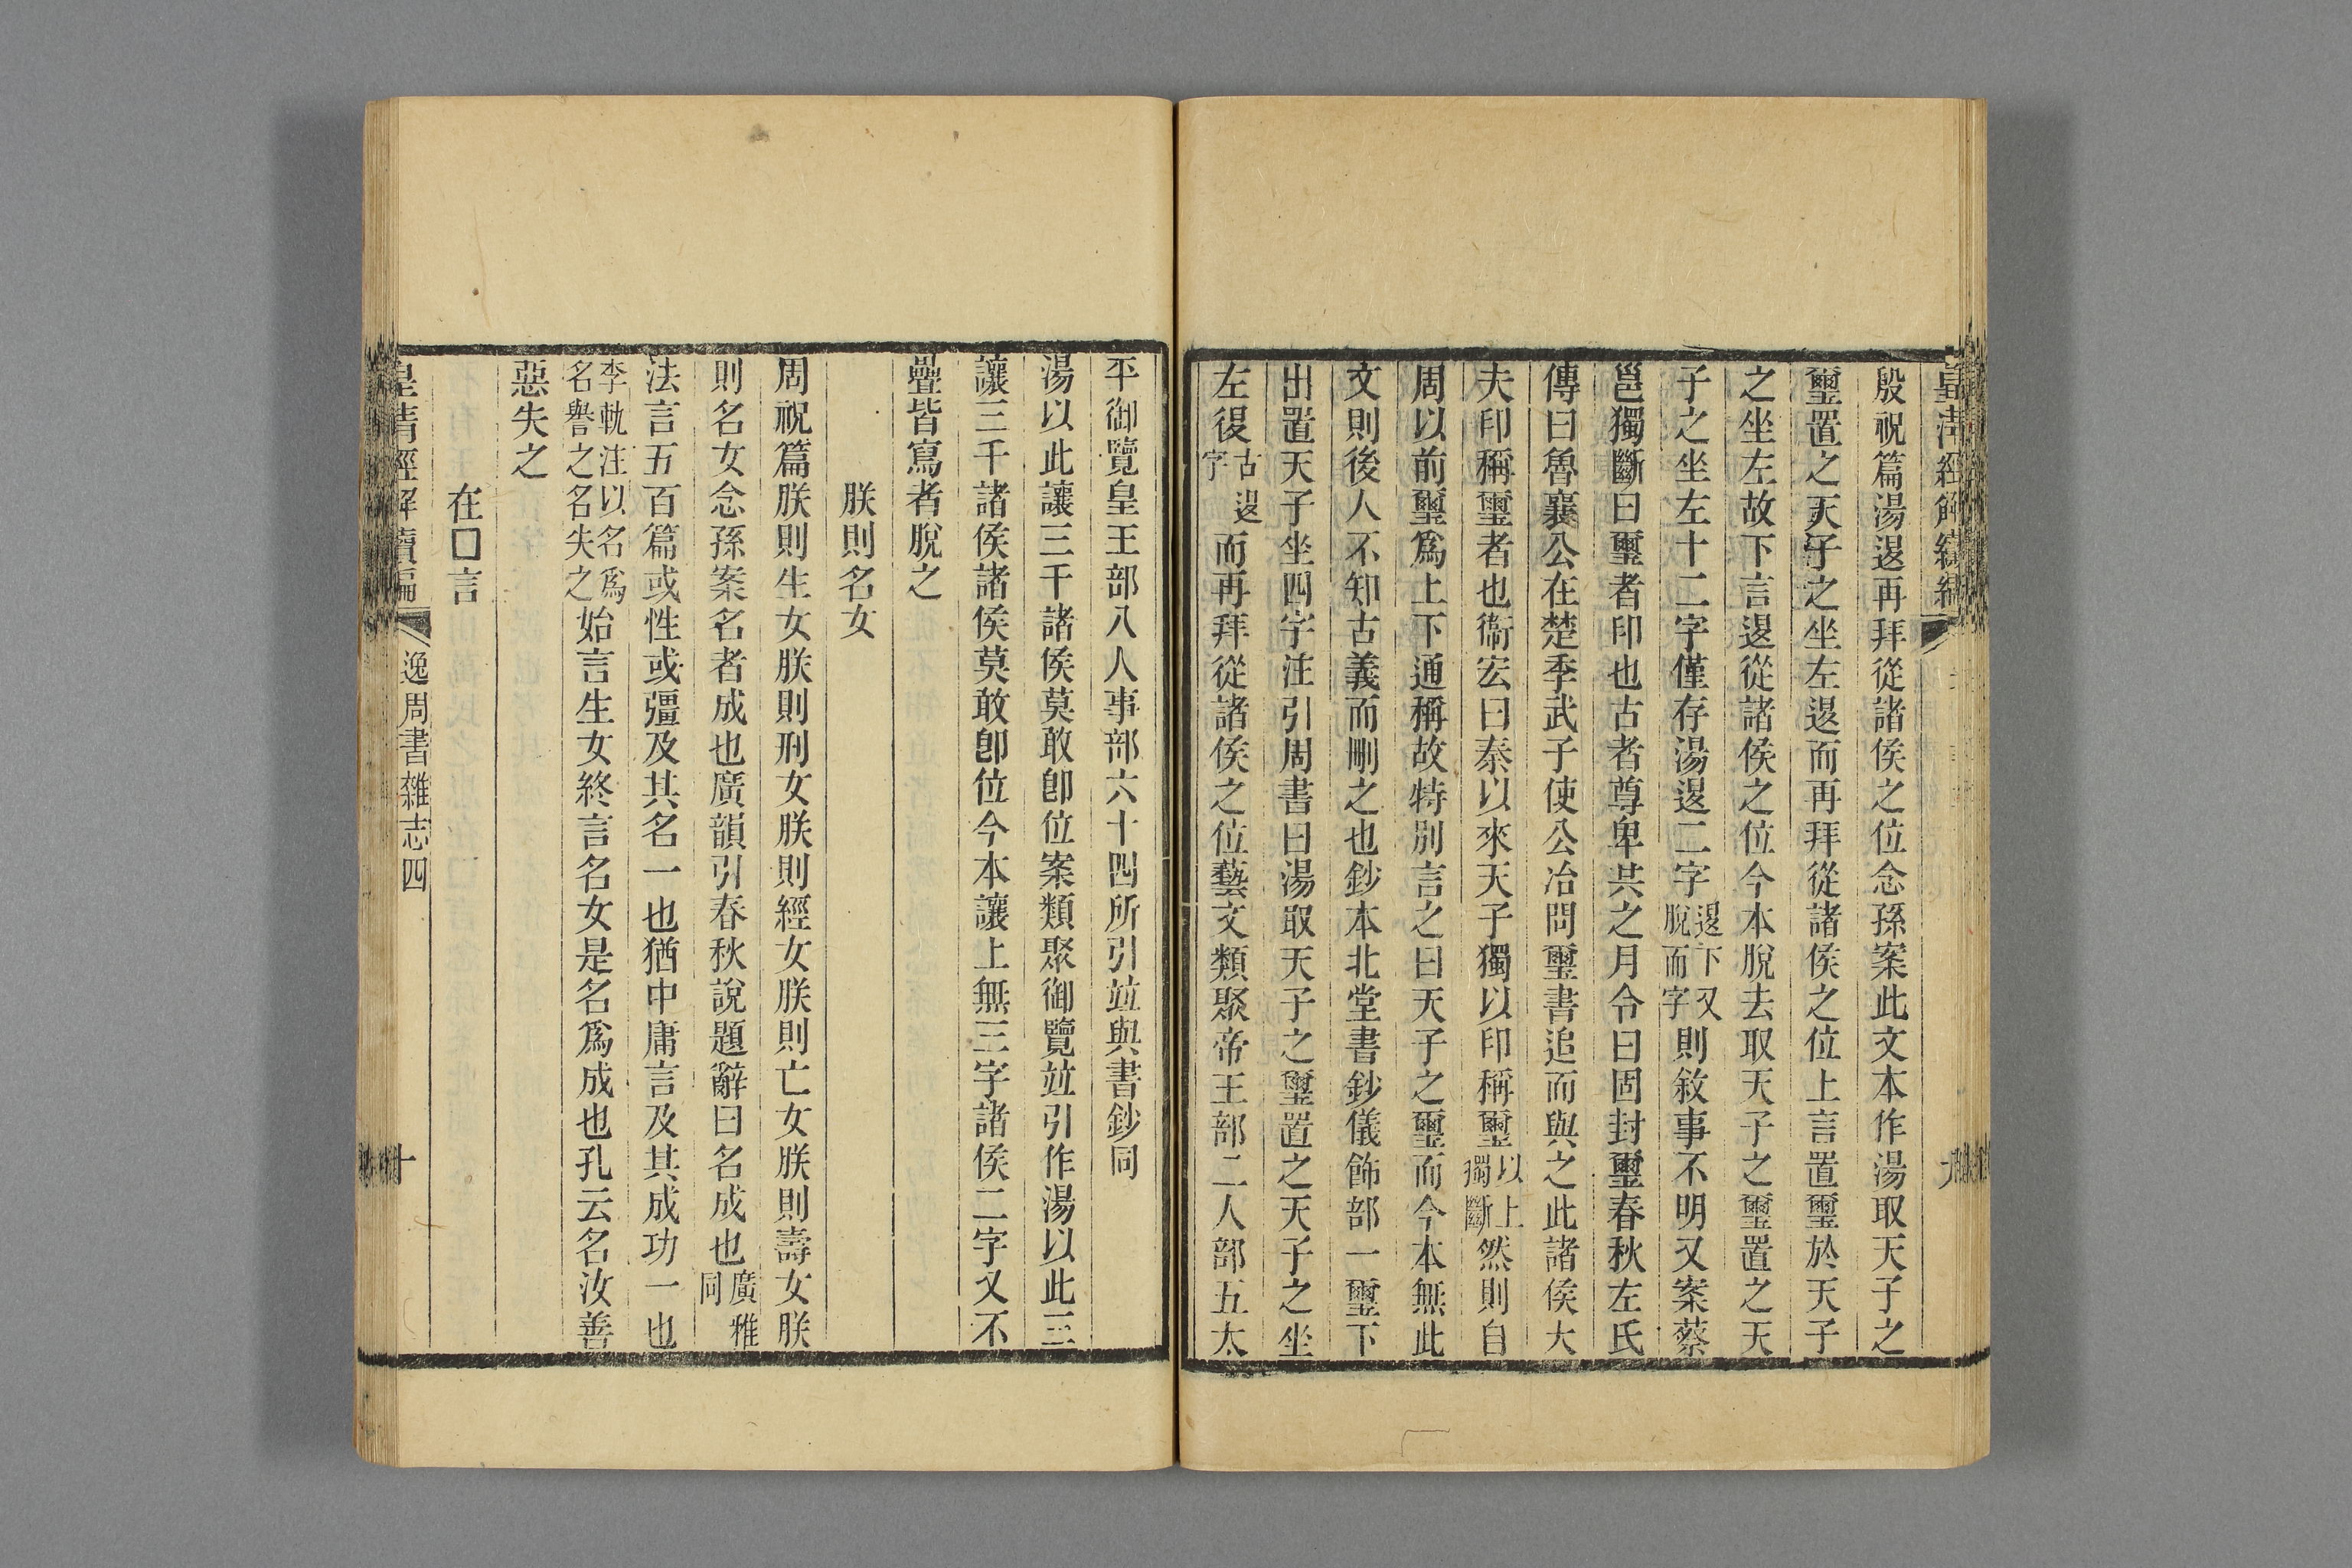 皇清經解續編
殷祝篇湯退再拜從諸侯之位念孫案此文本作湯取天子之
璽置之天子之坐左退而再拜從諸侯之位上言置璽於天子
之坐左故下言退從諸侯之位今本脫去取天子之璽置之天
子之坐左十二字僅存湯退二字退下又脫而字則敘事不明又案蔡
邕獨斷曰璽者印也古者尊卑共之月令曰固封璽春秋左氏
傳曰魯襄公在楚季武子使公冶問璽書追而與之此諸侯大
夫印稱璽者也衞宏曰秦以來天子獨以印稱璽以上獨斷然則自
周以前璽爲上下通稱故特別言之曰天子之璽而今本無此
文則後人不知古義而刪之也鈔本北堂書鈔儀飾部一璽下
出置天子坐四字注引周書曰湯取天子之璽置之天子之坐
左復古退字而再拜從諸侯之位藝文類聚帝王部二人部五太
平御覽皇王部八人事部六十四所引竝與書鈔同
湯以此讓三千諸侯莫敢卽位案類聚御覽竝引作湯以此三
讓三千諸侯諸侯莫敢卽位今本讓上無三字諸侯二字又不
疊皆寫者脫之
朕則名女
周祝篇朕則生女朕則刑女朕則經女朕則亡女朕則壽女朕
則名女念孫案名者成也廣韻引春秋說題辭曰名成也廣雅同
法言五百篇或性或彊及其名一也猶中庸言及其成功一也
李軌注以名爲名譽之名失之始言生女終言名女是名爲成也孔云名汝善
惡失之
在□言
皇清經解續編
逸周書雜志四
十